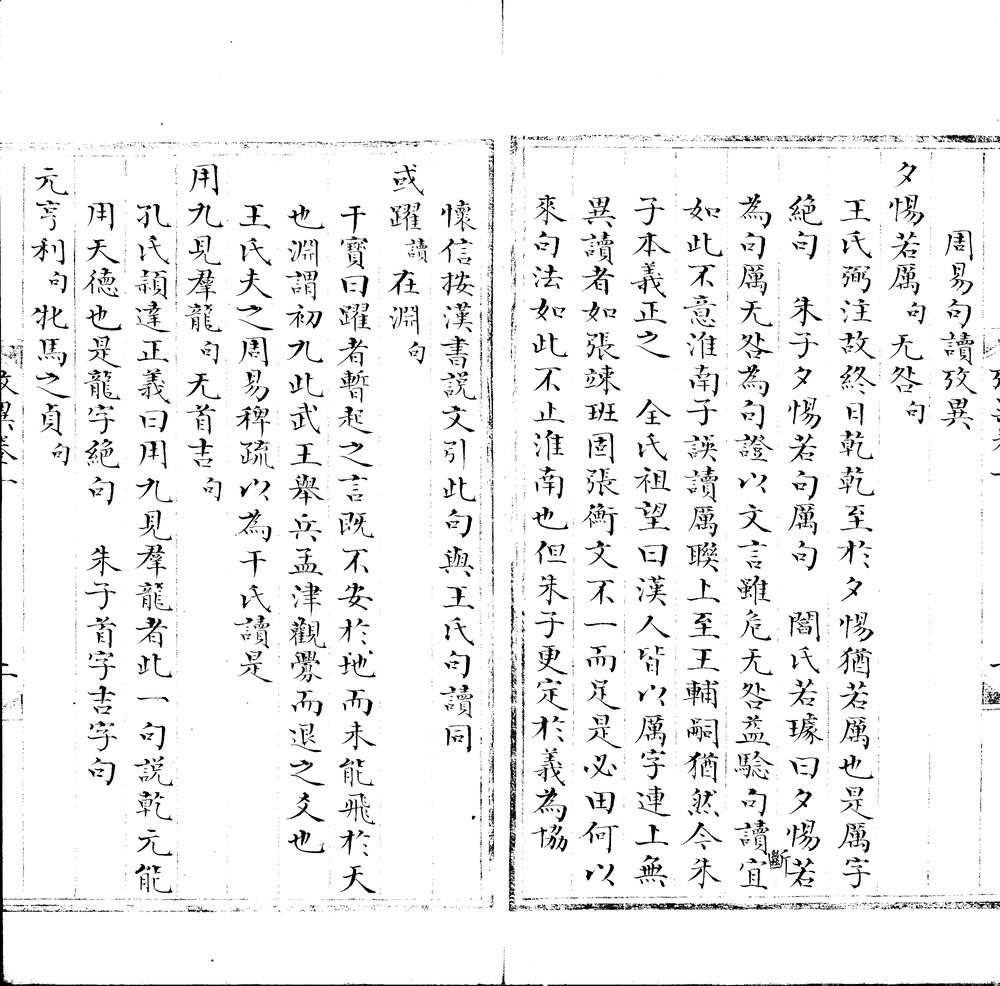 周易句讀攷異
夕惕若厲句无咎句
王氏弼注故終日乾乾至於夕惕猶若厲也是厲字
絕句　朱子夕惕若句厲句　閻氏若璩曰夕惕若
為句厲无咎為句證以文言雖危无咎益驗句讀斷宜
如此不意淮南子誤讀厲聯上至王輔嗣猶然今朱
子本義正之　全氏祖望曰漢人皆以厲字連上無
異讀者如張竦班固張衡文不一而足是必田何以
來句法如此不止淮南也但朱子更定於義為協
懷信按漢書說文引此句與王氏句讀同
或躍讀在淵句
干寶曰躍者暫起之言既不安於地而未能飛於天
也淵謂初九此武王舉兵孟津觀釁而退之爻也
王氏夫之周易稗疏以為干氏讀是
用九見羣龍句无首吉句
孔氏穎達正義曰用九見羣龍者此一句說乾元能
用天德也是龍字絕句　朱子首字吉字句
元亨利句牝馬之貞句